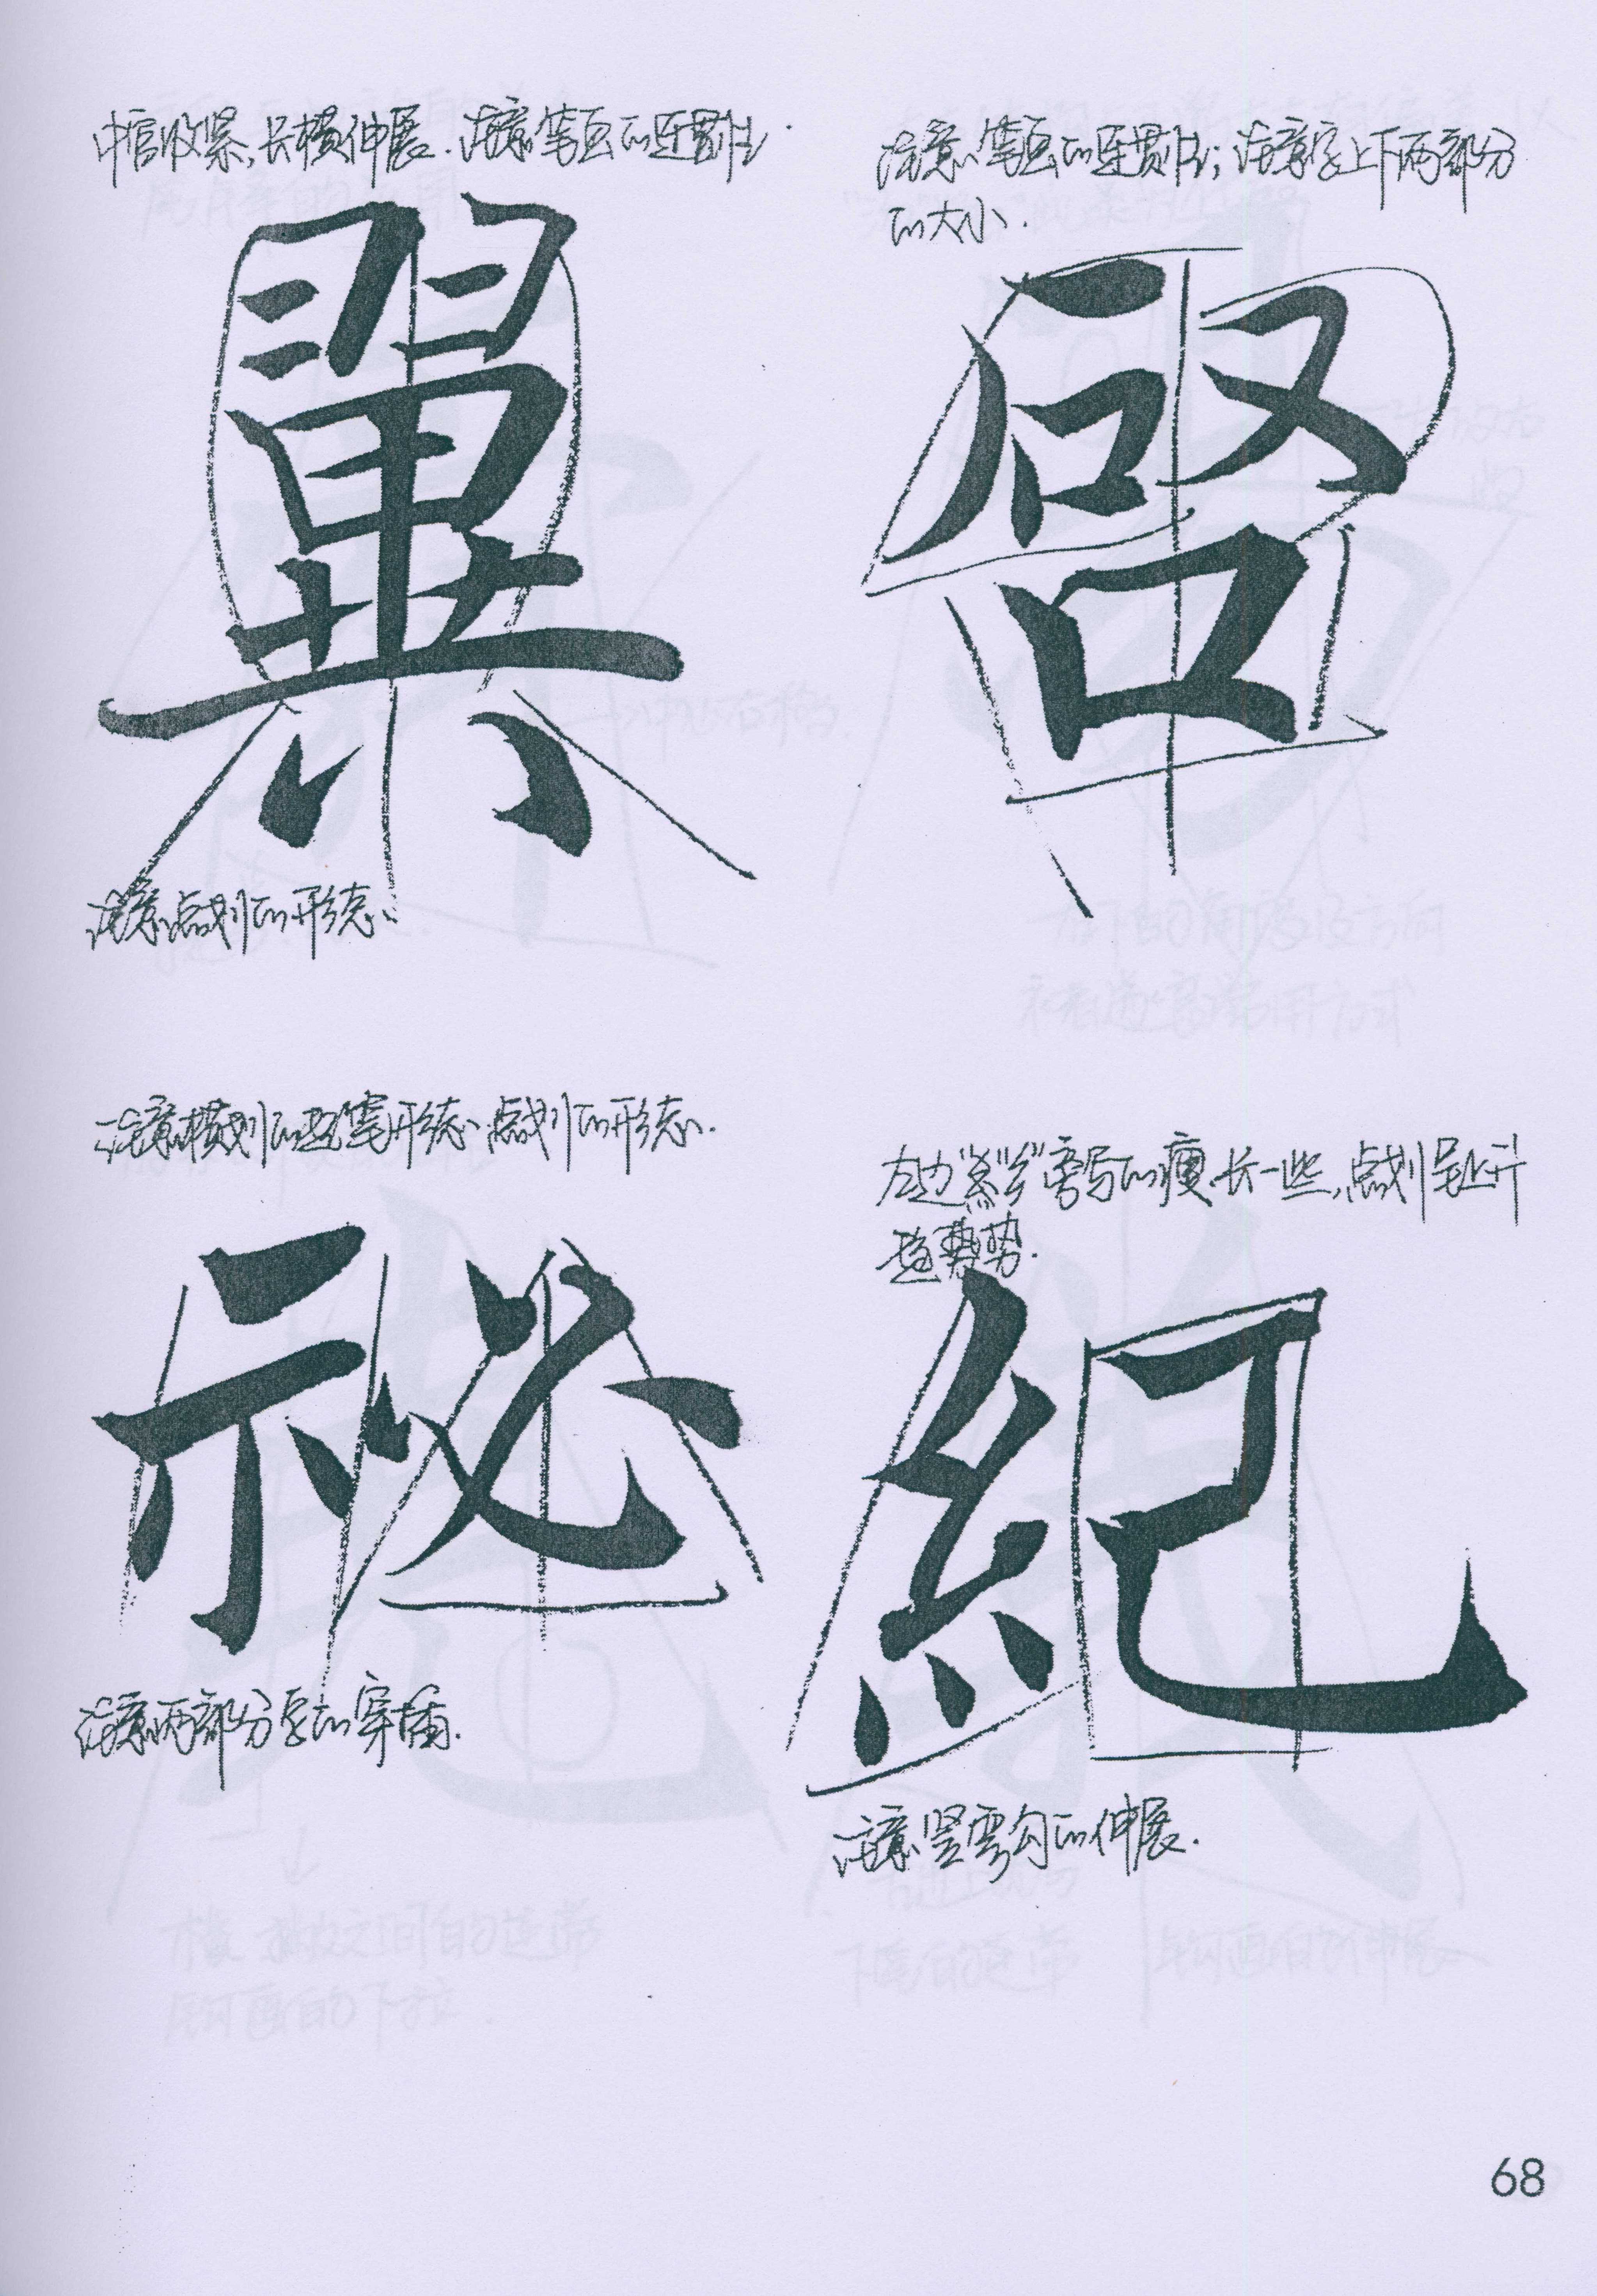 中宫收紧,长横伸展.注意笔画的连贯性.
翼
注意点划的形态.
注意笔画的连贯性;注意字上下两部分
的大小.
啓
注意横划的起笔形态、点划的形态.
祕
注意两部分字的穿插.
左边“糹”旁写的瘦长一些,点划呈上升
趋势.
紀
注意竖弯勾的伸展.
68